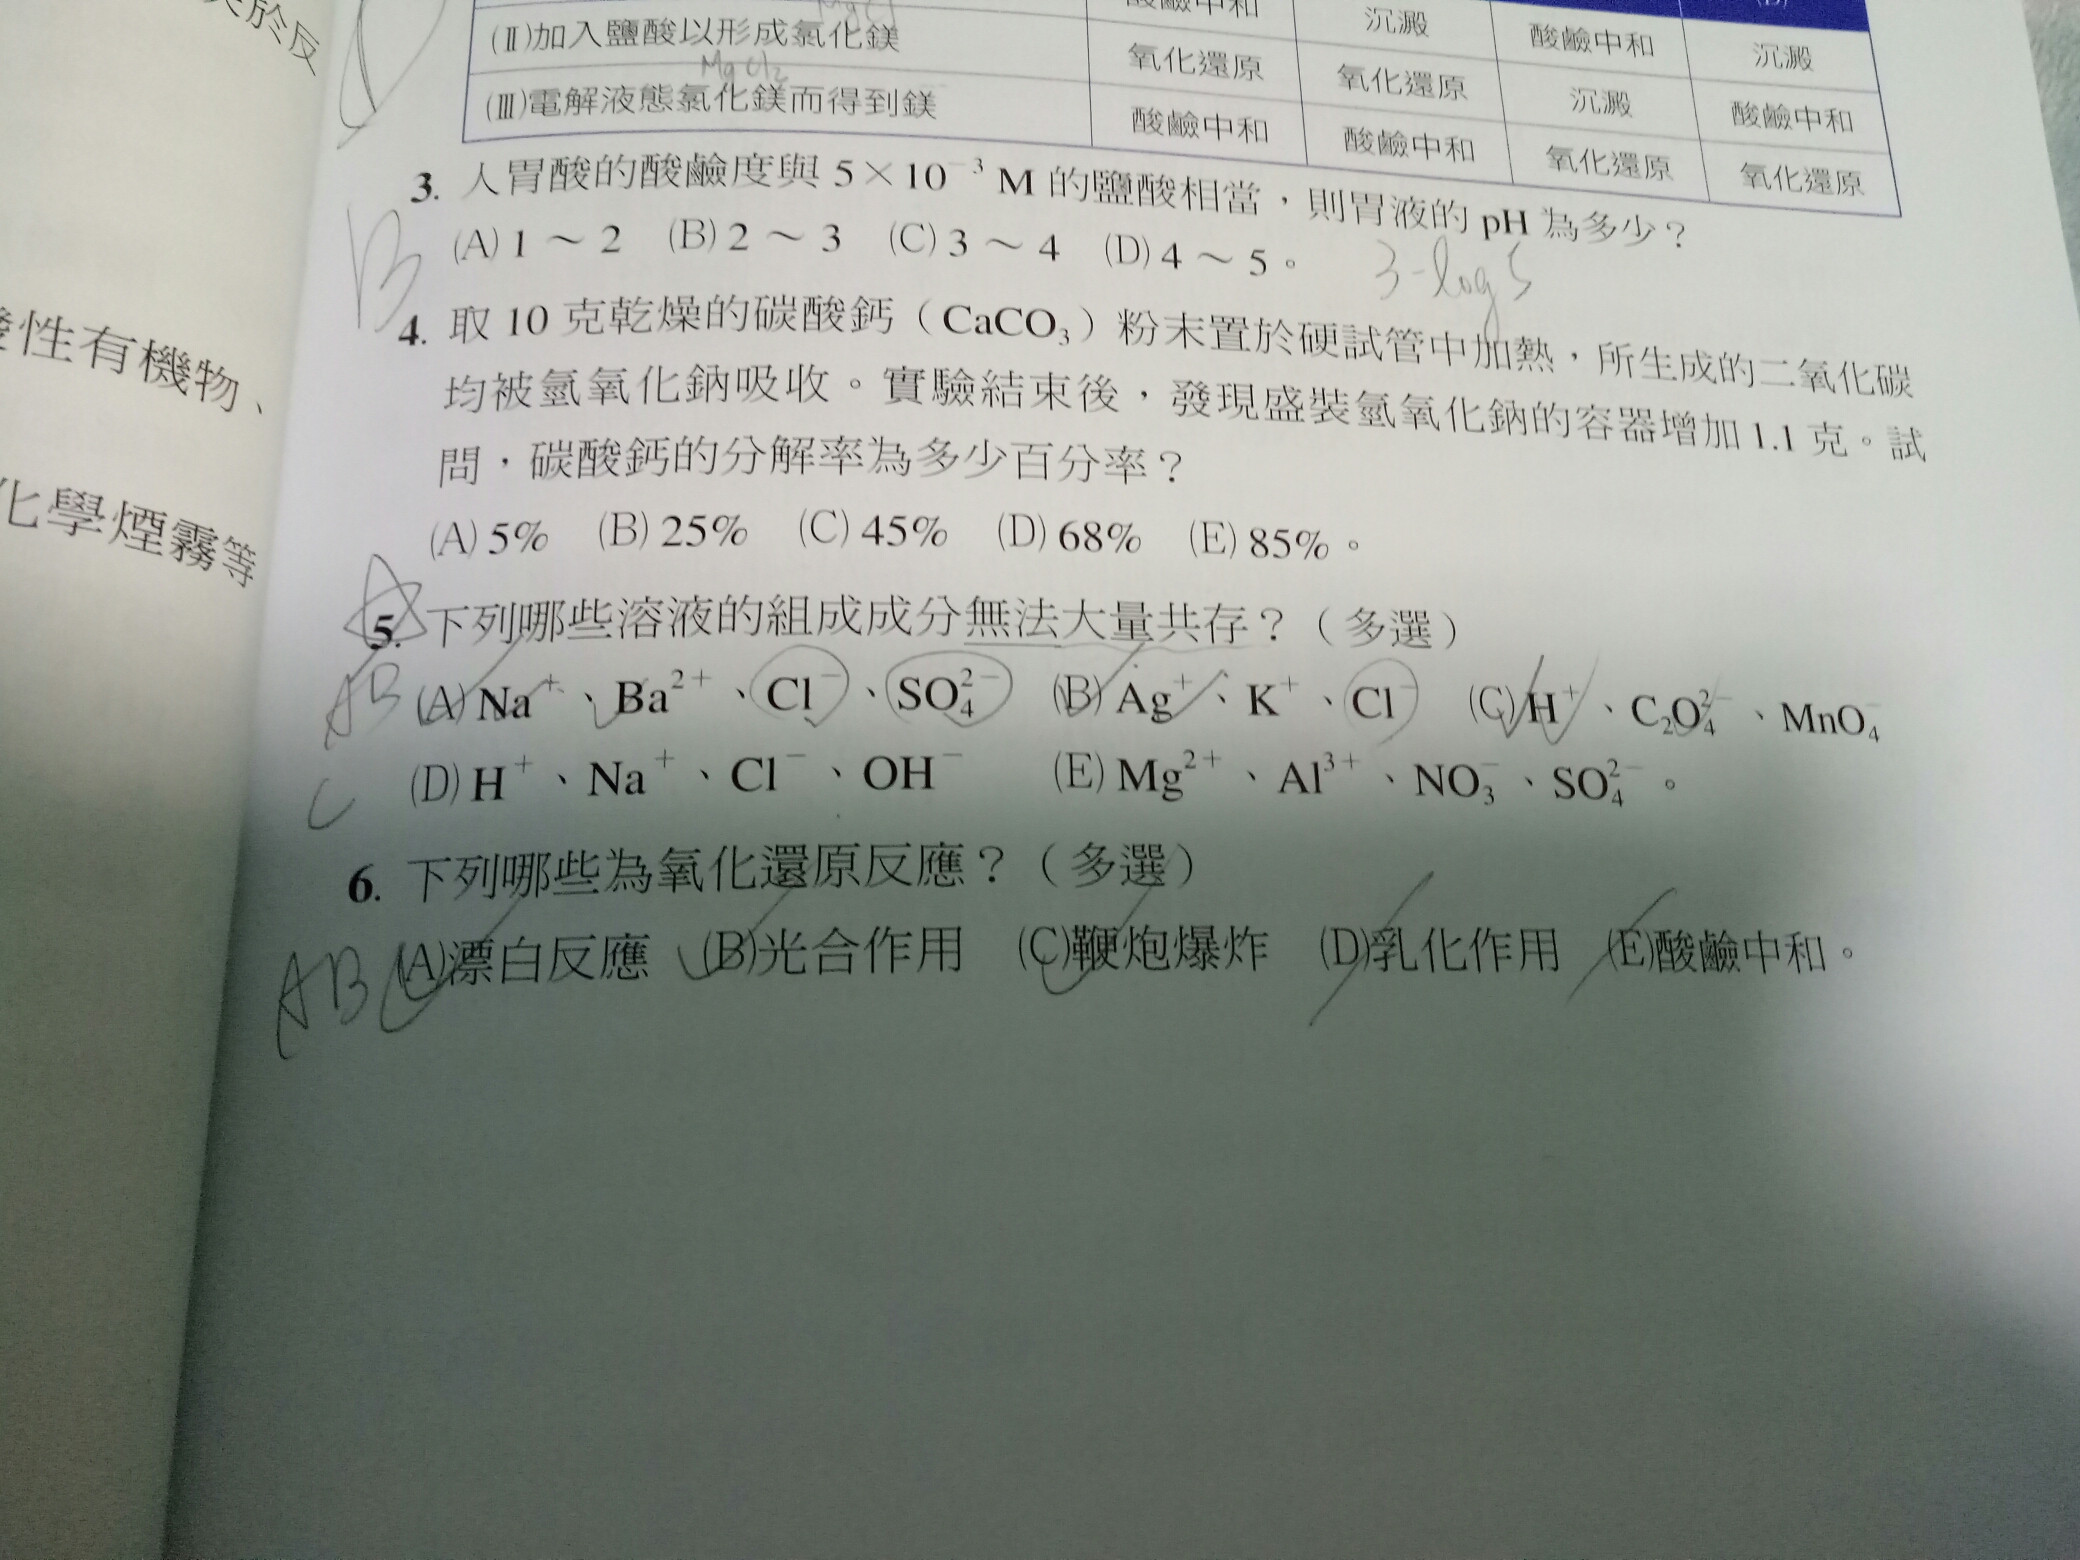 於反
(Ⅱ)加入鹽酸以形成氯化鎂 氧化還原 氧化還原 沉澱 酸鹼中和
MgCl2
(Ⅲ)電解液態氯化鎂而得到鎂 酸鹼中和 酸鹼中和 氧化還原 氧化還原
酸鹼中和 沉澱 酸鹼中和 沉澱
3. 人胃酸的酸鹼度與 5×10⁻³ M 的鹽酸相當，則胃液的 pH 為多少？
B (A) 1 ～ 2 (B) 2 ～ 3 (C) 3 ～ 4 (D) 4 ～ 5。
3-log5
4. 取 10 克乾燥的碳酸鈣（CaCO₃）粉末置於硬試管中加熱，所生成的二氧化碳
均被氫氧化鈉吸收。實驗結束後，發現盛裝氫氧化鈉的容器增加 1.1 克。試
問，碳酸鈣的分解率為多少百分率？
(A) 5% (B) 25% (C) 45% (D) 68% (E) 85%。
5. 下列哪些溶液的組成成分無法大量共存？（多選）
AB (A) Na⁺、Ba²⁺、Cl⁻、SO₄²⁻ (B) Ag⁺、K⁺、Cl⁻ (C) H⁺、C₂O₄²⁻、MnO₄⁻
C (D) H⁺、Na⁺、Cl⁻、OH⁻ (E) Mg²⁺、Al³⁺、NO₃⁻、SO₄²⁻。
6. 下列哪些為氧化還原反應？（多選）
ABC (A)漂白反應 (B)光合作用 (C)鞭炮爆炸 (D)乳化作用 (E)酸鹼中和。
性有機物、
化學煙霧等